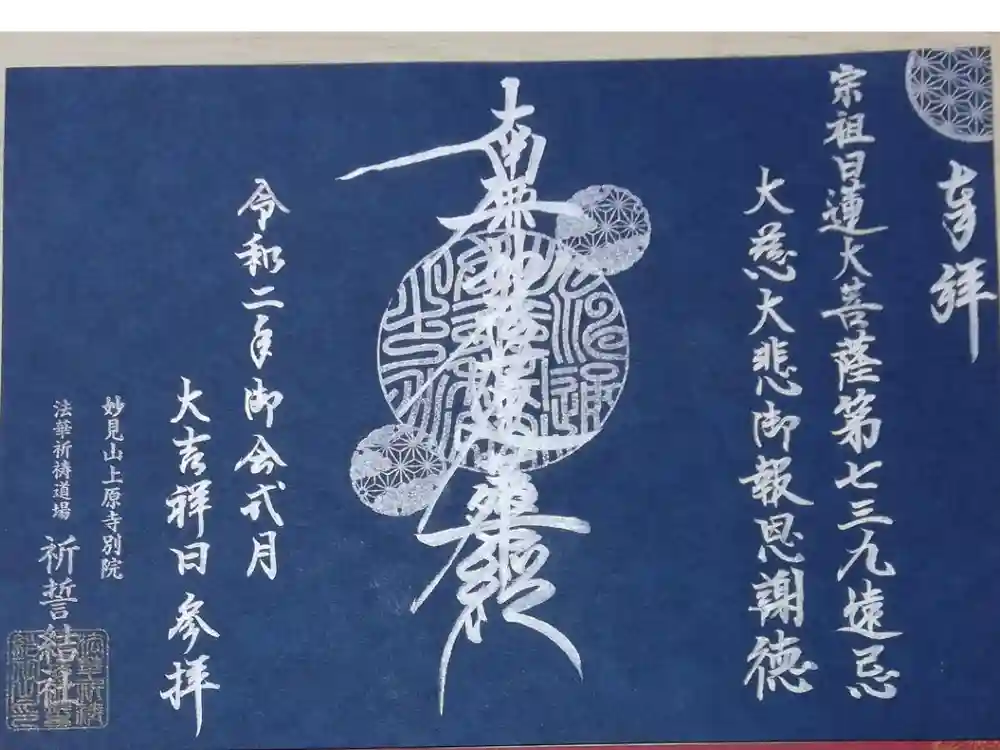 奉拝
宗祖日蓮大菩薩第七三九遠忌
大慈大悲御報恩謝徳
南無妙法蓮華経
令和二年御会式月
大吉祥日 参拝
妙見山上原寺別院
法華祈祷道場 祈誓結社